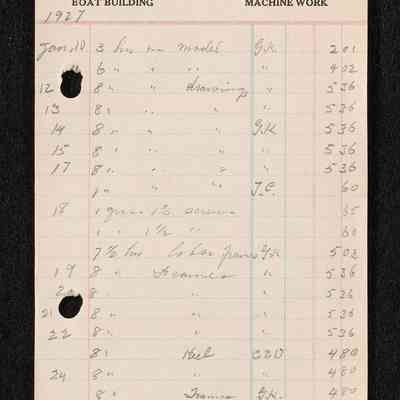 BOAT BUILDING MACHINE WORK
1927
Jan 10 3 hrs on model G.K. 2 01
6 " " " " 4 02
12 8 " " drawing " 5 36
13 8 " " " " 5 36
14 8 " " " G.K 5 36
15 8 " " " " 5 36
17 8 " " " " 5 36
1 " " " J.C. 60
18 1 gross 1¾ screws 65
1 " 1 1/2 " " 60
7 1/2 hrs labor frames G.K 5 02
19 8 " Frames " 5 36
20 8 " " " 5 36
21 8 " " " 5 36
22 8 " " " 5 36
8 " Keel 4 80
24 8 " " " 4 80
8 " Frames G.K. 5 36